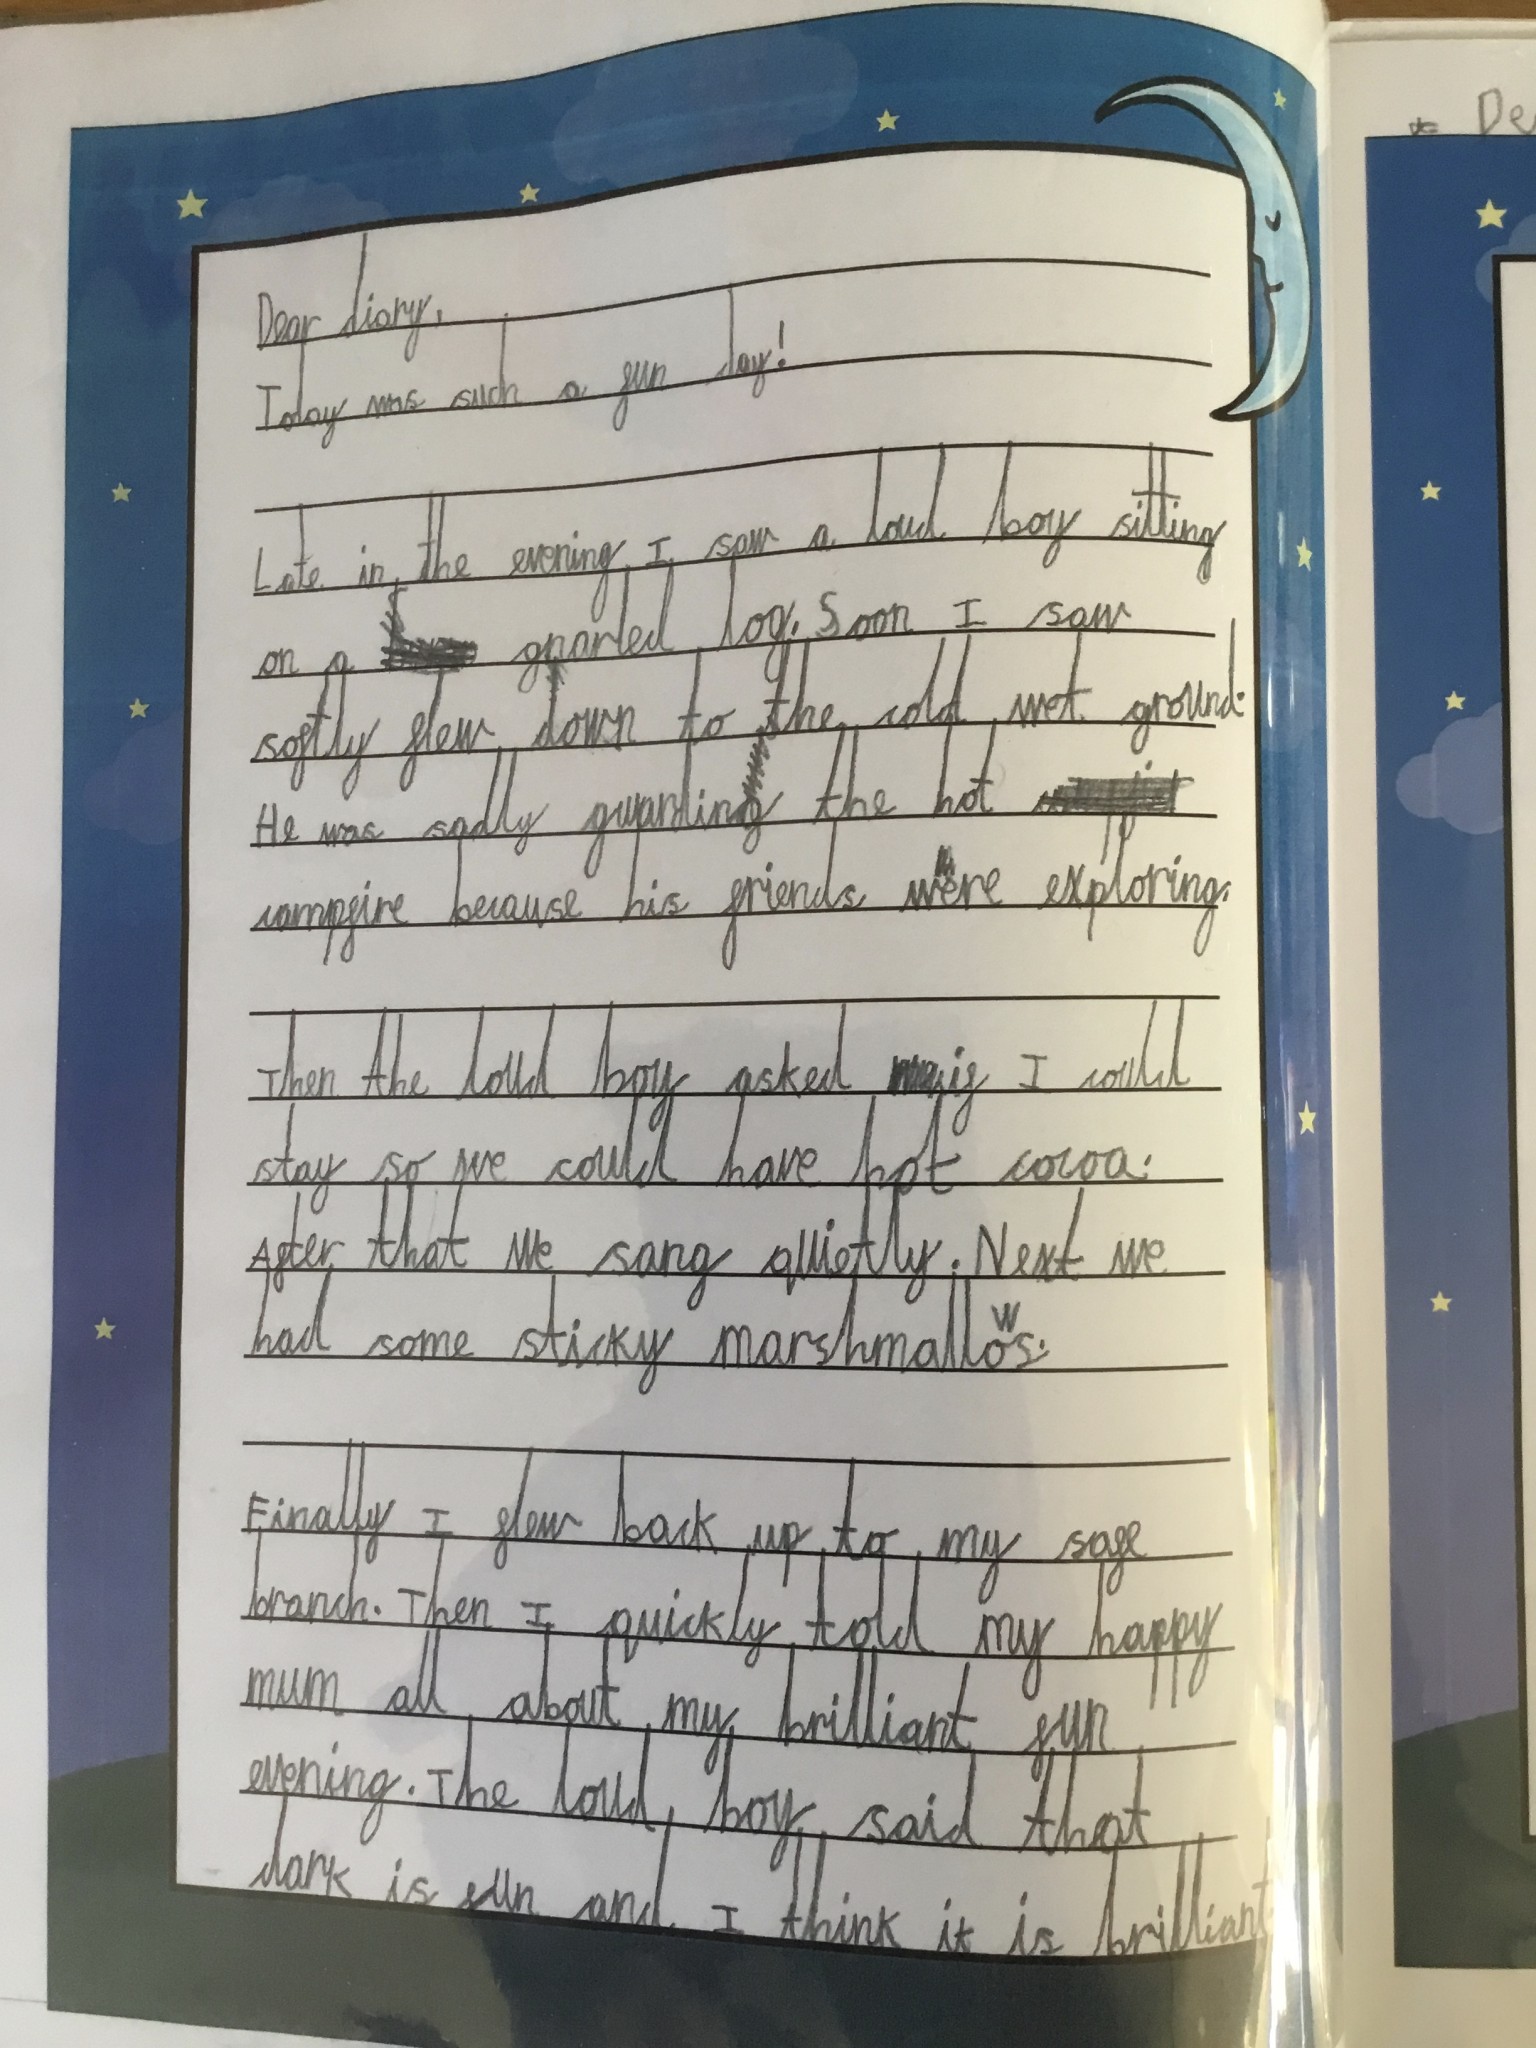 Dear diary,
Today was such a fun day!
Late in the evening I saw a loud boy sitting
on a gnarled log. Soon I saw
softly flew down to the cold wet ground.
He was sadly guarding the hot
campfire because his friends were exploring.
Then the loud boy asked if I could
stay so we could have hot cocoa.
After that we sang quietly. Next we
had some sticky marshmallows.
Finally I flew back up to my safe
branch. Then I quickly told my happy
mum all about my brilliant fun
evening. The loud boy said that
dark is fun and I think it is brilliant